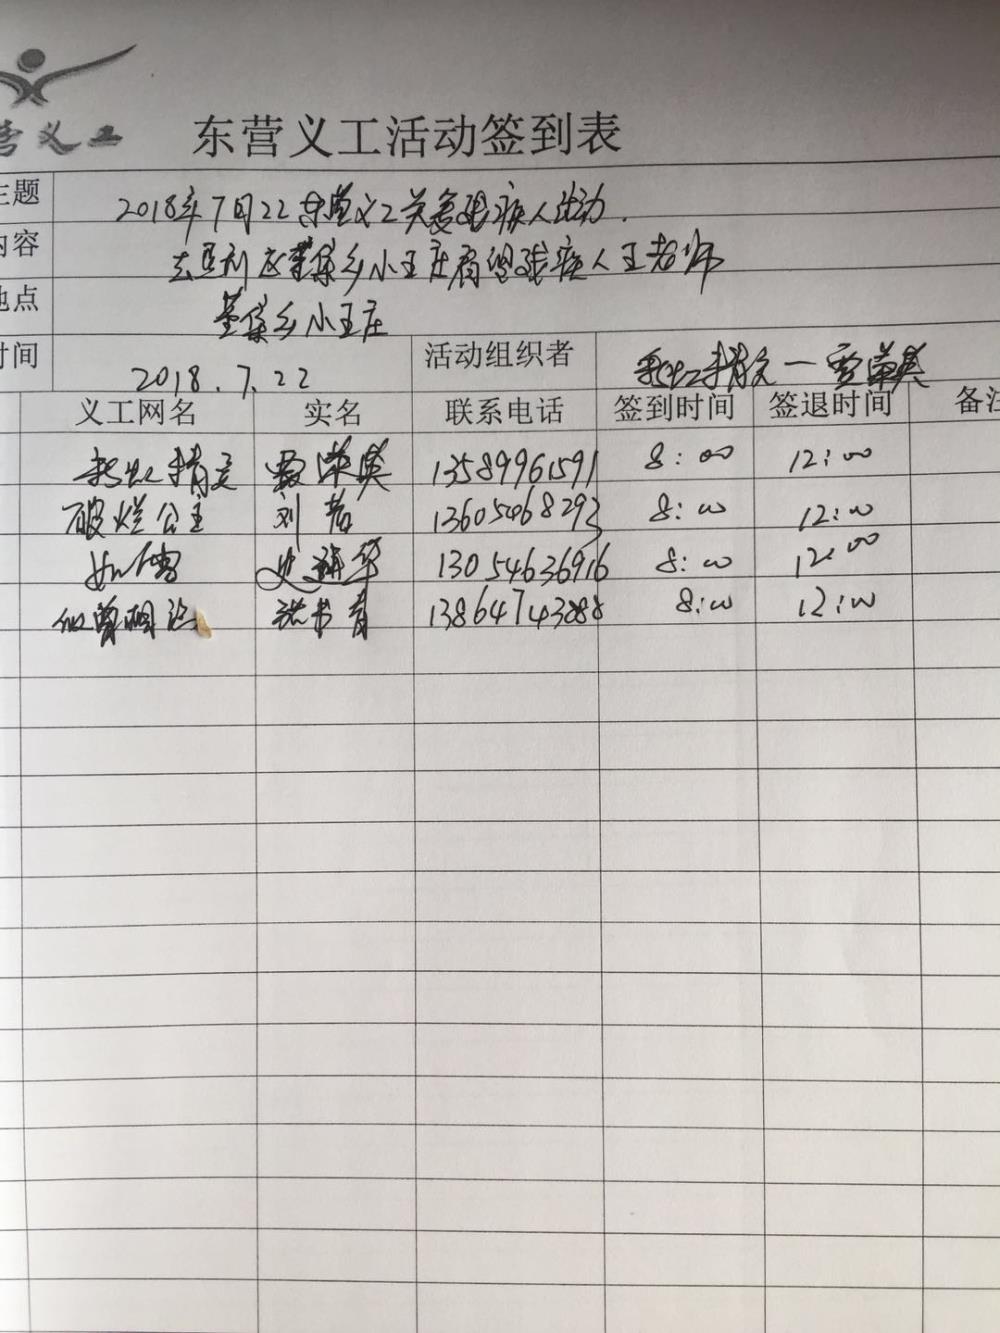 营义工
东营义工活动签到表
主题 2018年7月22东营义工关爱残疾人活动.
内容 去垦利区董集乡小王庄看望残疾人王老师
地点 董集乡小王庄
时间 2018.7.22 活动组织者 贾荣英
义工网名 实名 联系电话 签到时间 签退时间 备注
贾荣英 13589961591 8:00 12:00
破烂公主 刘 13605468293 8:00 12:00
13054636916 8:00 12:00
似曾相识 13864743888 8:00 12:00